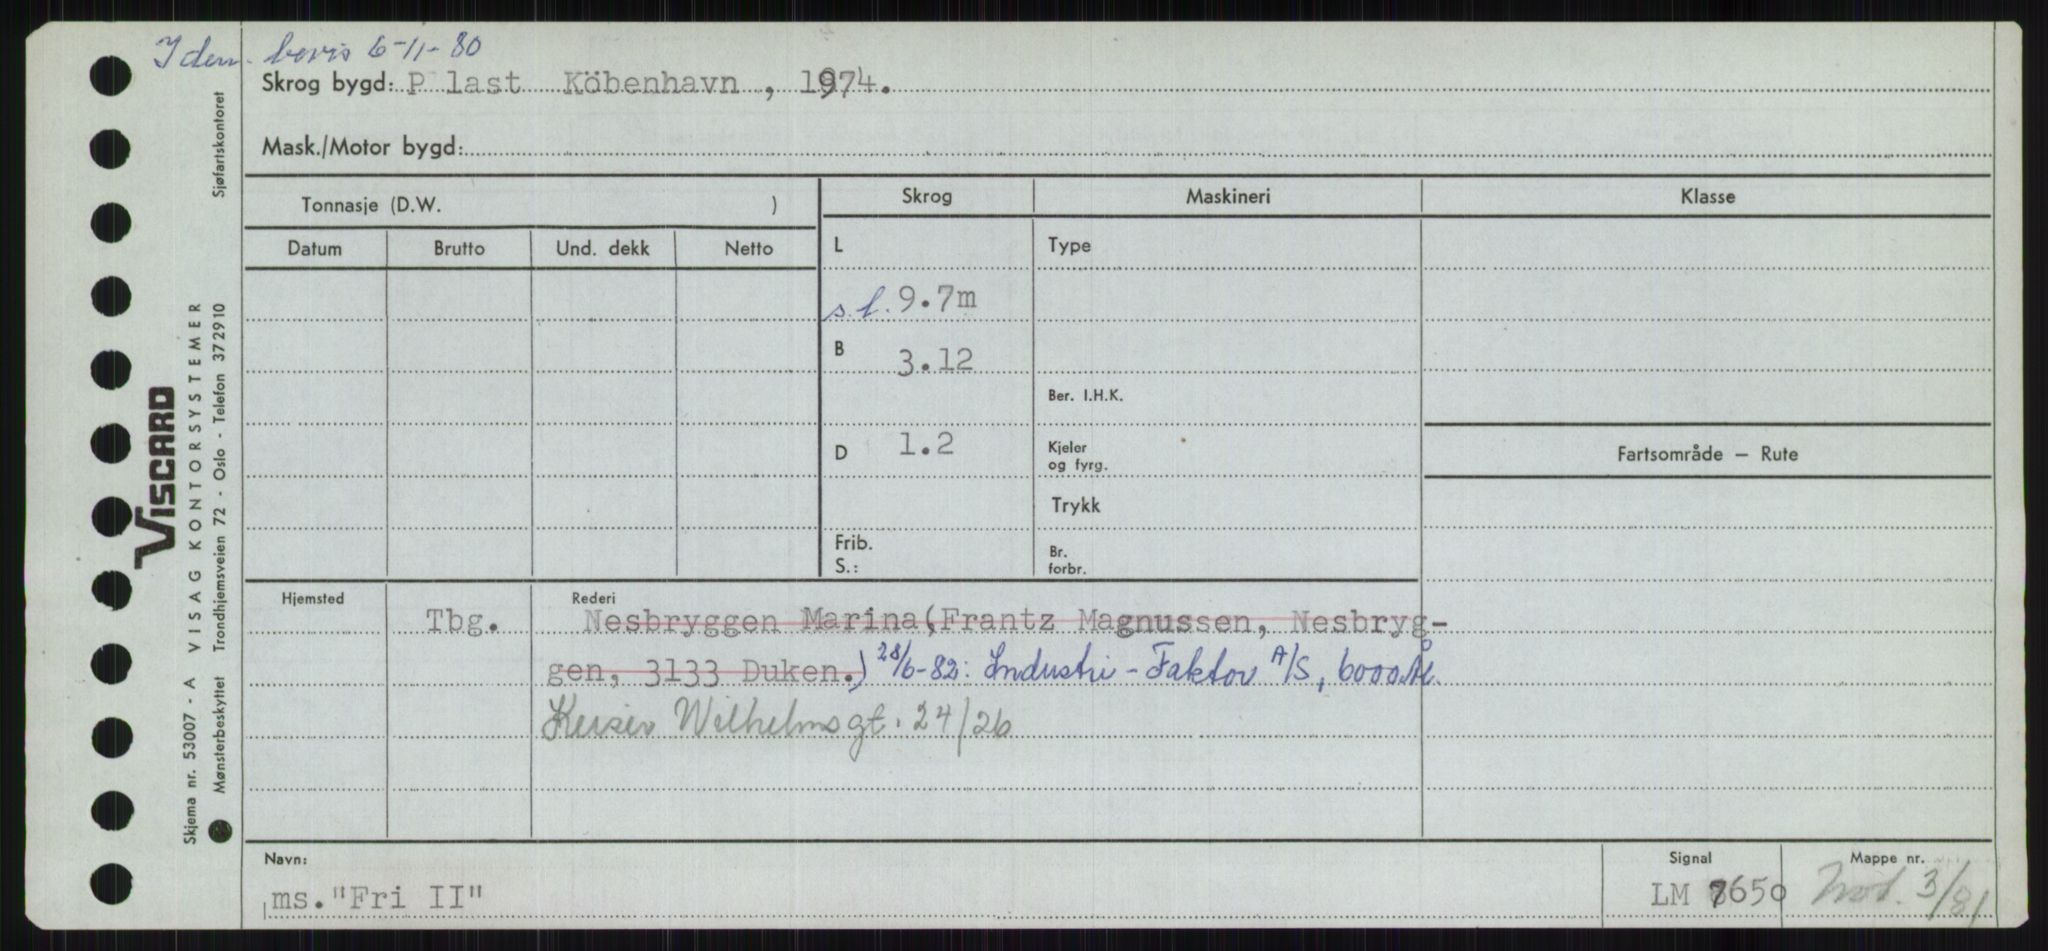 Iden. bevis 6-11-80
Skrog bygd: P last Köbenhavn , 1974.
Mask./Motor bygd:
Tonnasje (D.W. )
Skrog
Maskineri
Klasse
Datum
Brutto
Und. dekk
Netto
L
Type
s.l. 9.7m
B
3.12
Ber. I.H.K.
D
1.2
Kjeler
og fyrg.
Fartsområde — Rute
Trykk
Frib.
S.:
Br.
forbr.
Hjemsted
Rederi
Tbg.
Nesbryggen Marina(Frantz Magnussen, Nesbryg-
gen, 3133 Duken.) 28/6-82: Industri-Faktor A/S, 6000 Ål.
Keiser Wilhelmsgt. 24/26
Navn:
ms."Fri II"
Signal
LM 7650
Mappe nr.
3/81
VISCARD
Skjema nr. 53007 - A VISAG KONTORSYSTEMER
Mønsterbeskyttet Trondhjemsveien 72 - Oslo - Telefon 372910 Sjøfartskontoret